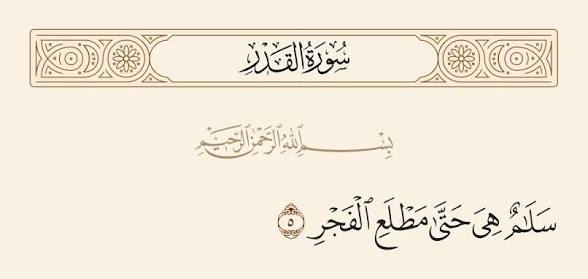 سُورَةُ القَدْرِ
بِسْمِ ٱللَّهِ ٱلرَّحْمَٰنِ ٱلرَّحِيمِ
سَلَٰمٌ هِىَ حَتَّىٰ مَطْلَعِ ٱلْفَجْرِ ٥